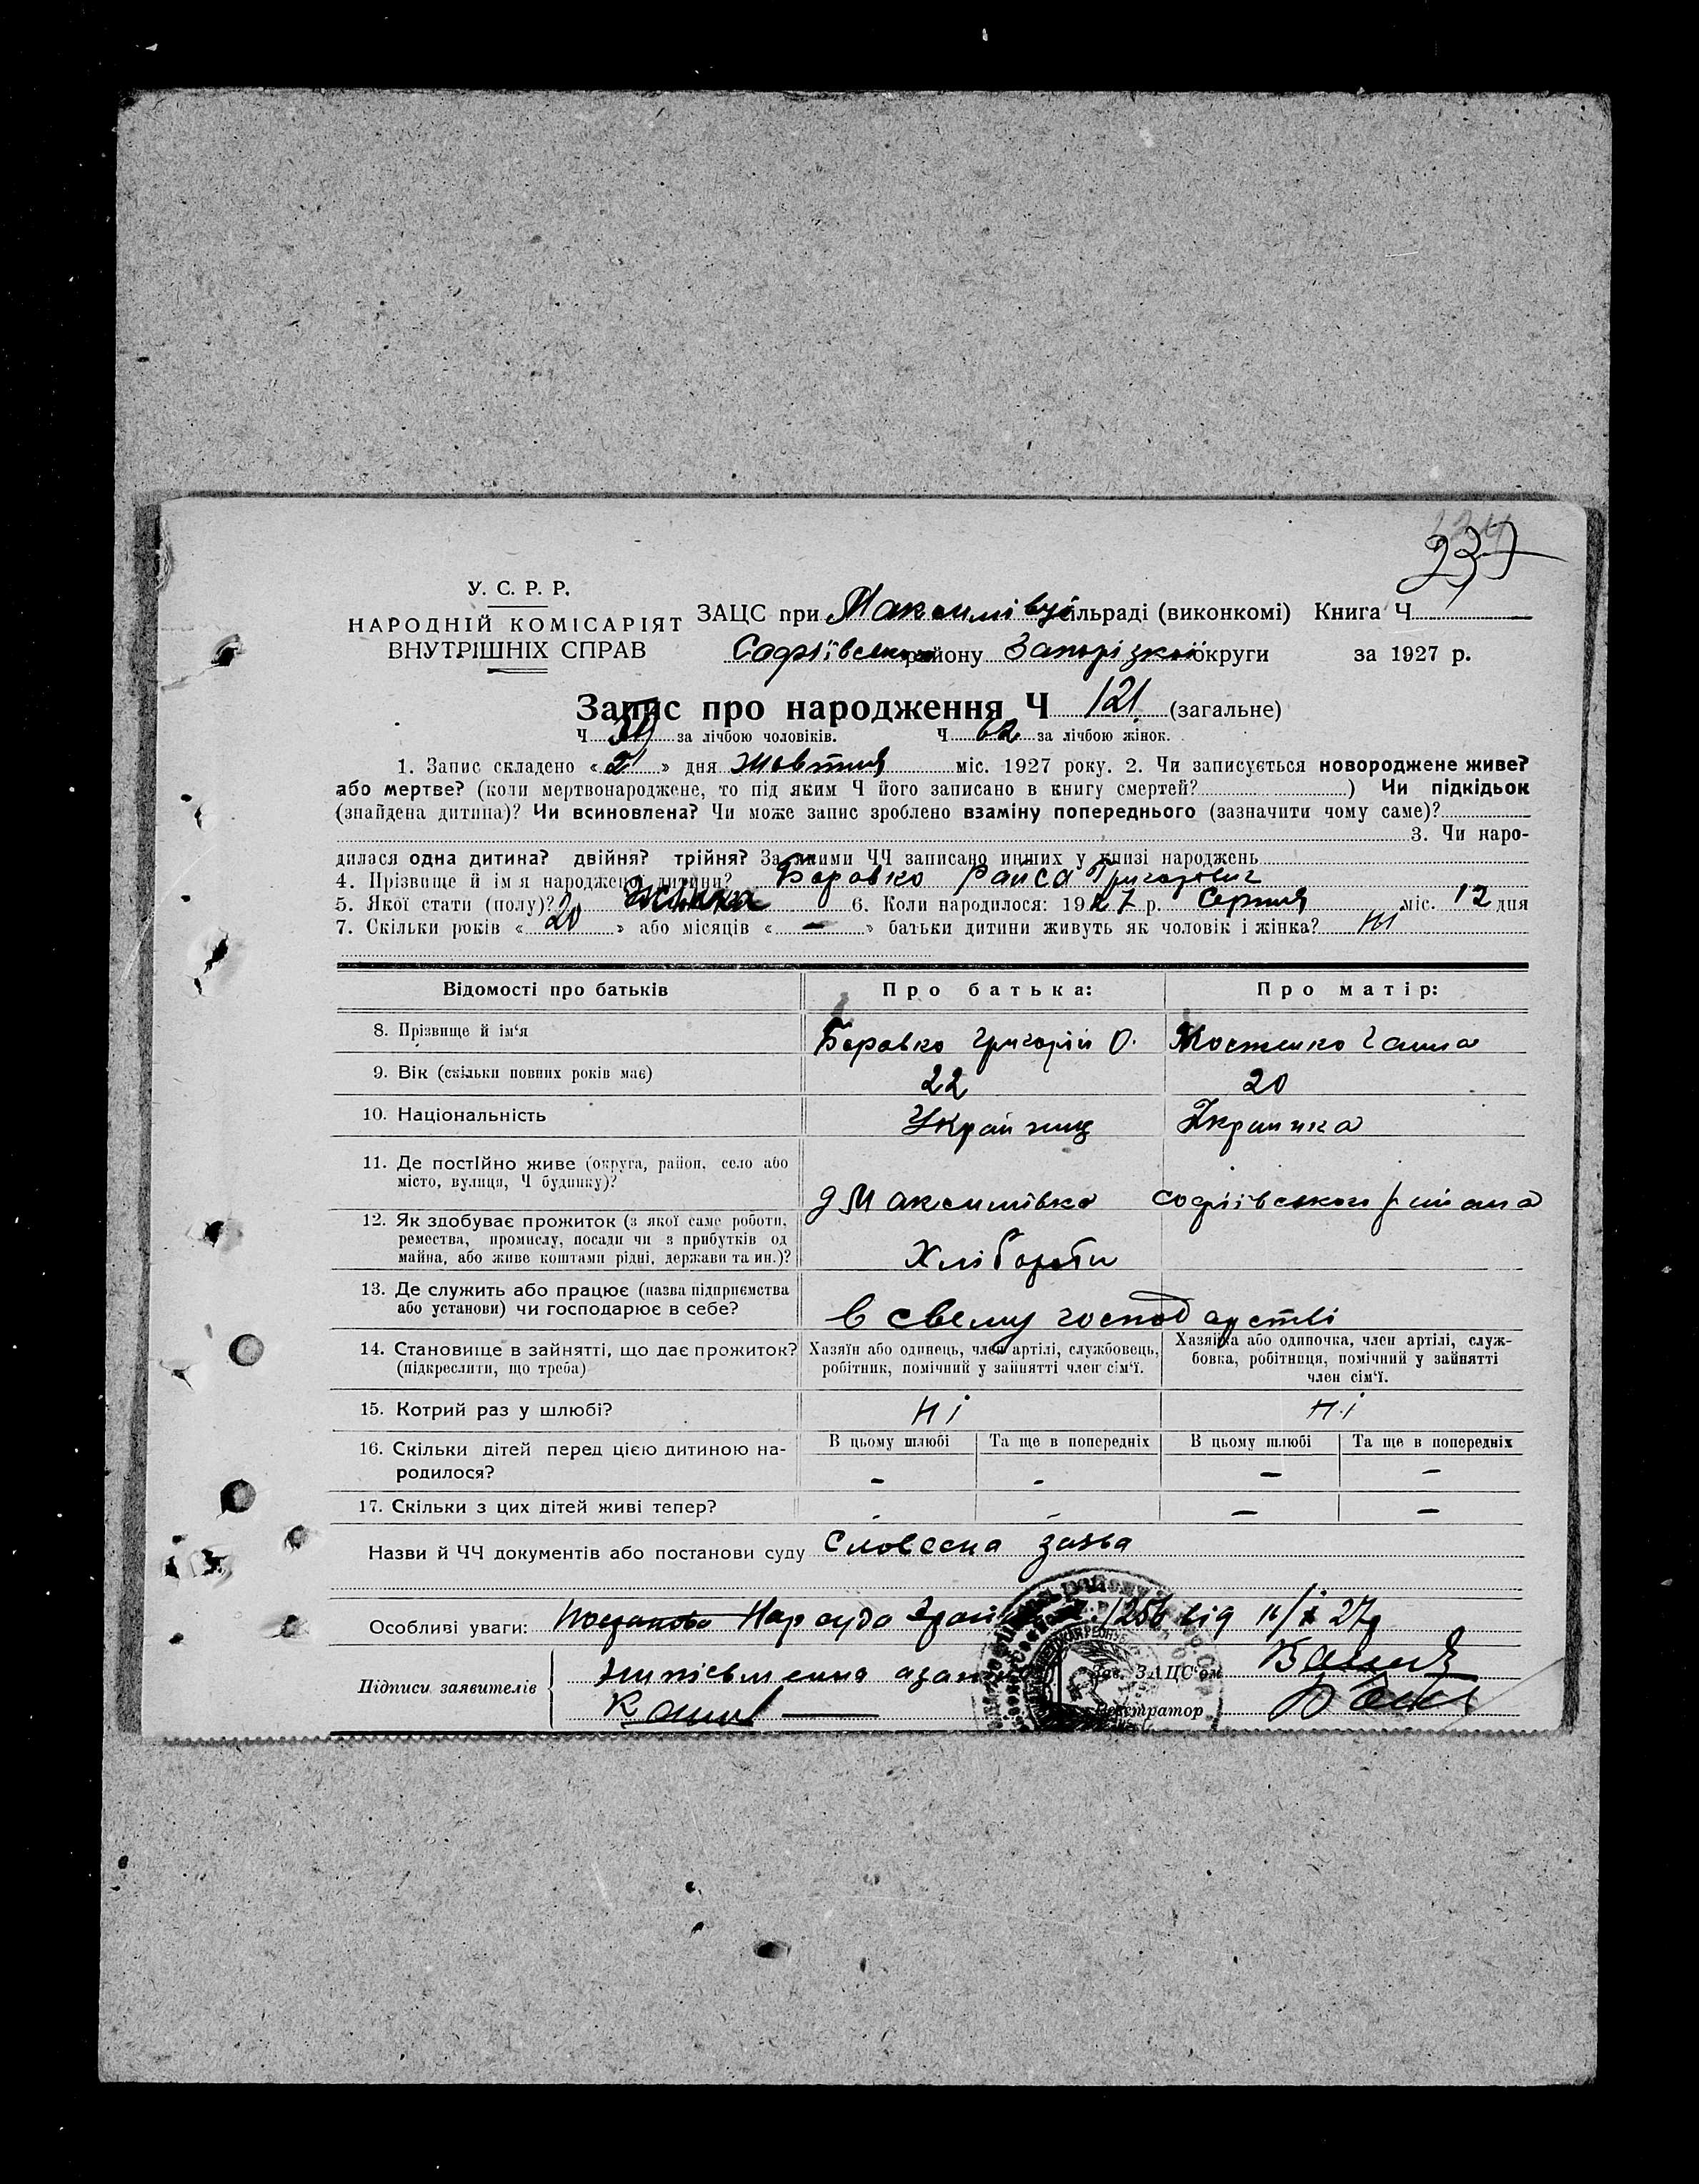 237
У. С. Р. Р.
НАРОДНІЙ КОМІСАРІЯТ
ВНУТРІШНІХ СПРАВ
ЗАЦС при Максимівці сільраді (виконкомі) Книга Ч
Софіївського району Запорізької округи за 1927 р.
Запис про народження Ч 121 (загальне)
Ч 59 за лічбою чоловіків. Ч 62 за лічбою жінок.
1. Запис складено «2» дня жовтня міс. 1927 року. 2. Чи записується новороджене живе?
або мертве? (коли мертвонароджене, то під яким Ч його записано в книгу смертей? ) Чи підкідьок
(знайдена дитина)? Чи всиновлена? Чи може запис зроблено взаміну попереднього (зазначити чому саме)?
3. Чи наро-
дилася одна дитина? двійня? трійня? За якими ЧЧ записано инших у книзі народжень
4. Прізвище й ім я народженої дитини? Боровко Раиса Григорович
5. Якої стати (полу)? жінка 6. Коли народилося: 1927 р. Серпня міс. 12 дня
7. Скільки років «20» або місяців «—» батьки дитини живуть як чоловік і жінка? ні
Відомості про батьків Про батька: Про матір:
8. Прізвище й ім‘я Боровко Григорій О. Костенко Ганна
9. Вік (скільки повних років має) 22 20
10. Національність Українець Украинка
11. Де постійно живе (округа, район, село або
місто, вулиця, Ч будинку)?
д Максимівка Софіївського району
12. Як здобуває прожиток (з якої саме роботи,
ремества, промислу, посади чи з прибутків од
майна, або живе коштами рідні, держави та ин.)?
Хлібороби
13. Де служить або працює (назва підприємства
або установи) чи господарює в себе?
в свему господарстві
14. Становище в зайнятті, що дає прожиток? (підкреслити, що треба)
Хазяїн або одинець, член артілі, службовець,
робітник, помічний у зайнятті член сім‘ї.
Хазяйка або одиночка, член артілі, служ-
бовка, робітниця, помічний у зайнятті
член сім‘ї.
15. Котрий раз у шлюбі? Ні Ні
16. Скільки дітей перед цією дитиною на-
родилося?
В цьому шлюбі Та ще в попередніх В цьому шлюбі Та ще в попередніх
- - - -
17. Скільки з цих дітей живі тепер? - - - -
Назви й ЧЧ документів або постанови суду Словесна заява
Особливі уваги: Постанова Нар суда 1256 від
Підписи заявителів
Зав. ЗАЦС‘ом
Реєстратор